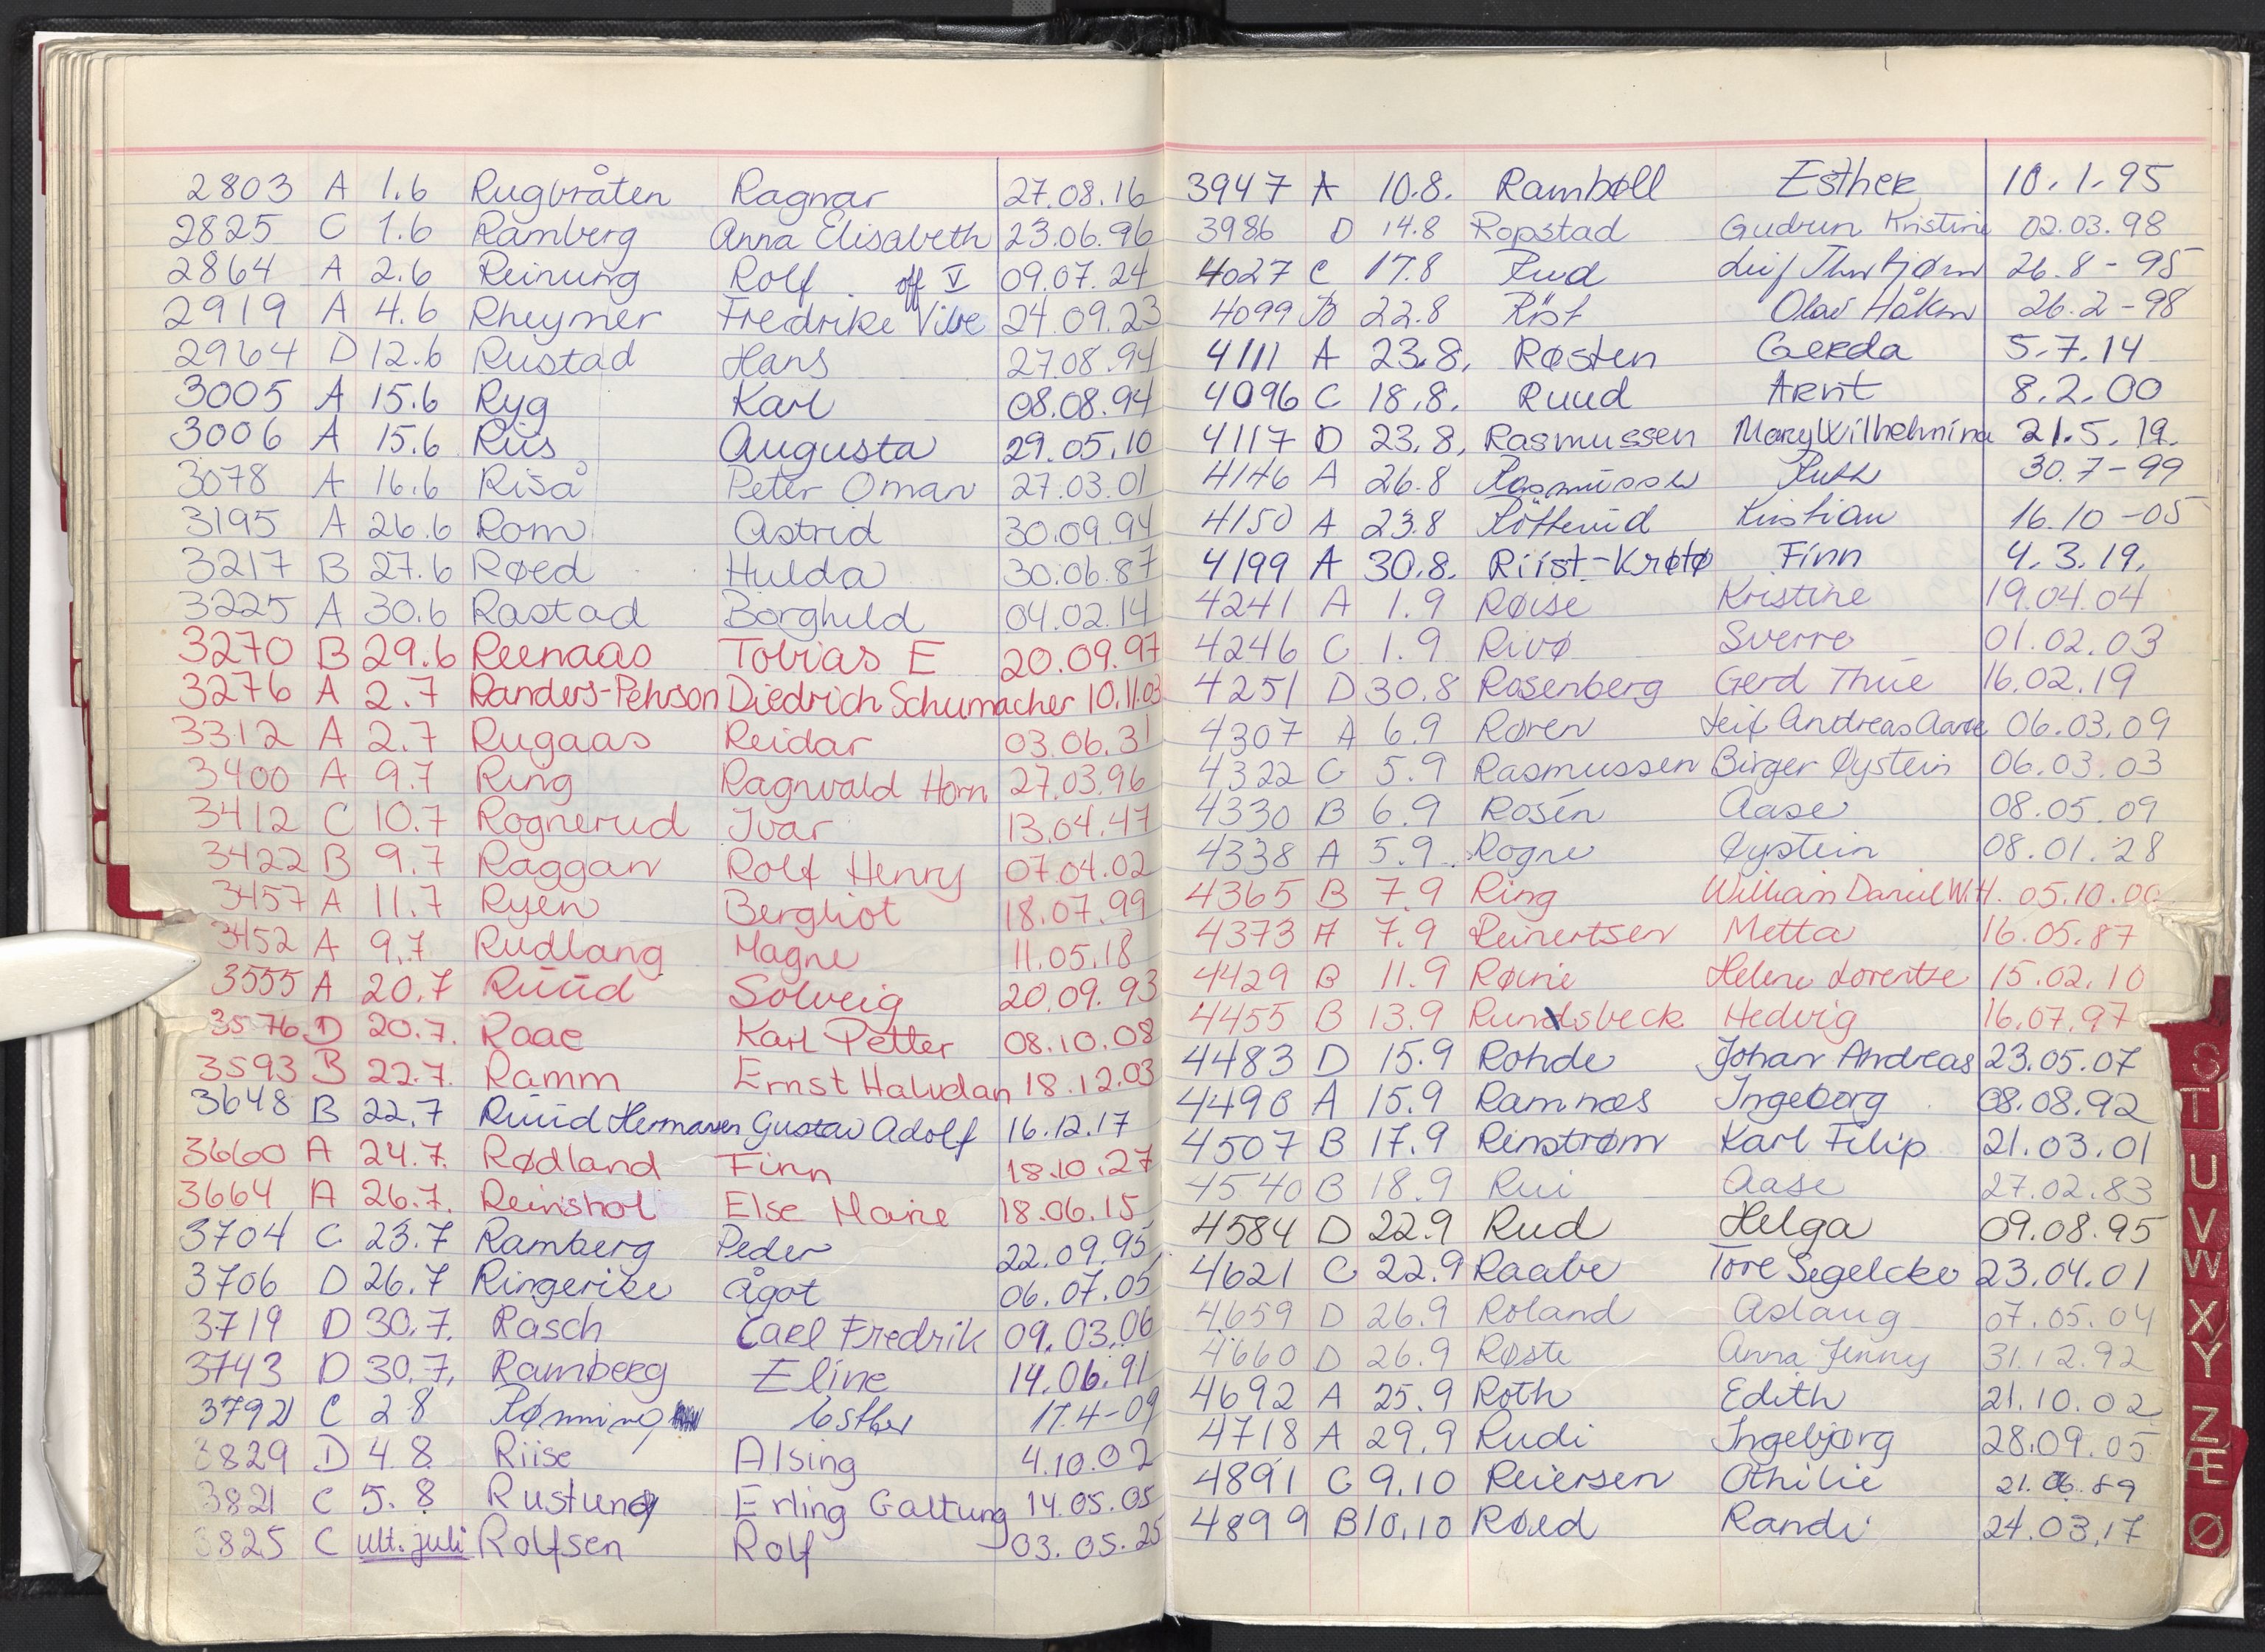 2803 A 1.6 Rugbråten Ragnar 27.08.16
2825 C 1.6 Ramberg Anna Elisabeth 23.06.96
2864 A 2.6 Reinung Rolf off V 09.07.24
2919 A 4.6 Rheymer Fredrike Vibe 24.09.23
2964 D 12.6 Rustad Hans 27.08.94
3005 A 15.6 Ryg Karl 08.08.94
3006 A 15.6 Riis Augusta 29.05.10
3078 A 16.6 Riså Peter Oman 27.03.01
3195 A 26.6 Rom Astrid 30.09.94
3217 B 27.6 Røed Hulda 30.06.87
3225 A 30.6 Rastad Borghild 04.02.14
3270 B 29.6 Reenaas Tobias E 20.09.97
3276 A 2.7 Randers-Pehrson Diedrich Schumacher 10.11.03
3312 A 2.7 Rugaas Reidar 03.06.31
3400 A 9.7 Ring Ragnvald Horn 27.03.96
3412 C 10.7 Rognerud Ivar 13.04.47
3422 B 9.7 Raggan Rolf Henry 07.04.02
3457 A 11.7 Ryen Bergliot 18.07.99
3452 A 9.7 Rudlang Magne 11.05.18
3555 A 20.7 Ruud Solveig 20.09.93
3576 D 20.7. Raae Karl Petter 08.10.08
3593 B 22.7. Ramm Ernst Halvdan 18.12.03
3648 B 22.7 Ruud Hermansen Gustav Adolf 16.12.17
3660 A 24.7. Rødland Finn 18.10.27
3664 A 26.7. Reinshol Else Marie 18.06.15
3704 C 23.7 Ramberg Peder 22.09.95
3706 D 26.7 Ringerike Ågot 06.07.05
3719 D 30.7. Rasch Carl Fredrik 09.03.06
3743 D 30.7. Ramberg Eline 14.06.91
3792 C 2 8 Rønning Esther 17.4-09
3829 D 4.8 Riise Alsing 4.10.02
3821 C 5.8 Rustung Erling Galtung 14.05.05
3825 C ult. juli Rolfsen Rolf 03.05.25
3947 A 10.8. Rambøll Esther 10.1.95
3986 D 14.8 Ropstad Gudrun Kristine 02.03.98
4027 C 17.8 Rud Leif Thorbjørn 26.8-95
4099 B 22.8 Röst Olav Håkon 26.2-98
4111 A 23.8. Røsten Gerda 5.7.14
4096 C 18.8. Ruud Arnt 8.2.00
4117 D 23.8. Rasmussen Mary Wilhelmina 21.5.19.
4146 A 26.8 Rasmussen Ruth 30.7-99
4150 A 23.8 Rötterud Kristian 16.10-05
4199 A 30.8. Riist-Krøtø Finn 4.3.19.
4241 A 1.9 Røise Kristine 19.04.04
4246 C 1.9 Rivø Sverre 01.02.03
4251 D 30.8 Rosenberg Gerd Thue 16.02.19
4307 A 6.9 Røren Leif Andreas Aarøe 06.03.09
4322 C 5.9 Rasmussen Birger Øystein 06.03.03
4330 B 6.9 Rosén Aase 08.05.09
4338 A 5.9 Rogne Øystein 08.01.28
4365 B 7.9 Ring William Daniel W.H. 05.10.00
4373 A 7.9 Reinertsen Metta 16.05.87
4429 B 11.9 Røine Helene Lorentse 15.02.10
4455 B 13.9 Rundsbeck Hedvig 16.07.97
4483 D 15.9 Rohde Johan Andreas 23.05.07
4498 A 15.9 Ramnæs Ingeborg 08.08.92
4507 B 17.9 Renstrøm Karl Filip 21.03.01
4540 B 18.9 Rui Aase 27.02.83
4584 D 22.9 Rud Helga 09.08.95
4621 C 22.9 Raabe Tore Segelcke 23.04.01
4659 D 26.9 Roland Aslaug 07.05.04
4660 D 26.9 Røste Anna Jenny 31.12.92
4692 A 25.9 Roth Edith 21.10.02
4718 A 29.9 Rudi Ingebjørg 28.09.05
4891 C 9.10 Reiersen Othilie 21.06.89
4899 B 10.10 Røed Randi 24.03.17
S
T
U
V
W
X
Y
Z
Æ
Ø